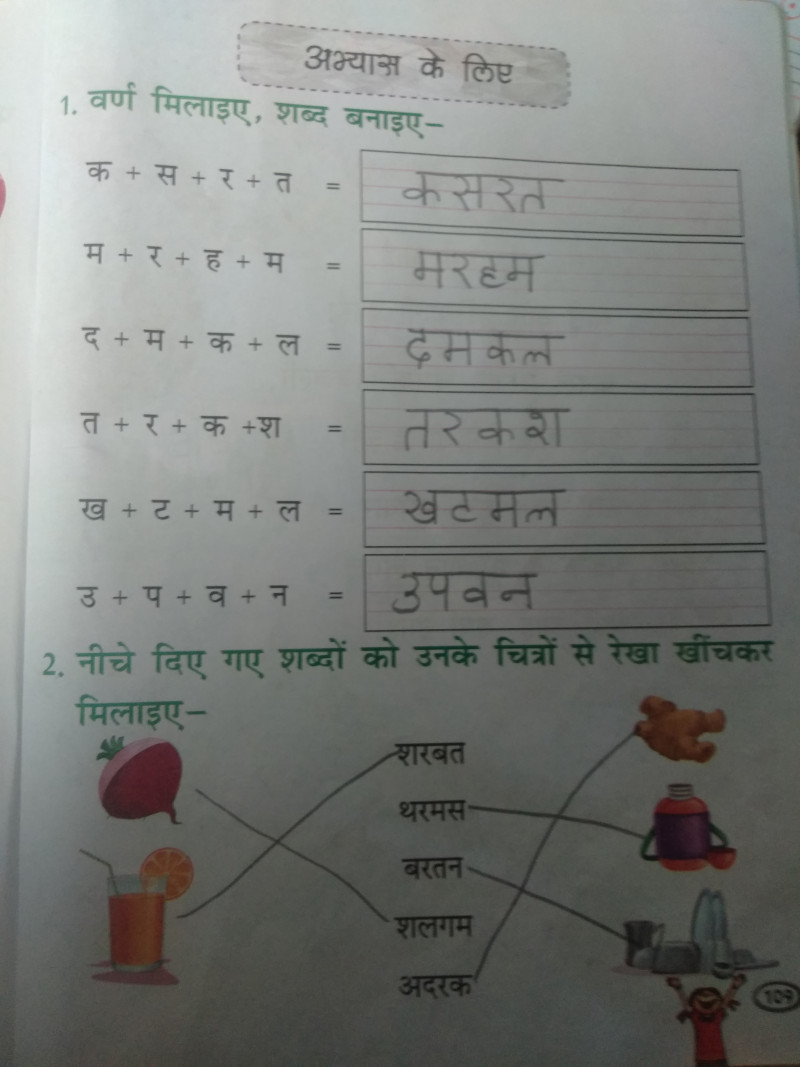 अभ्यास के लिए
1. वर्ण मिलाइए, शब्द बनाइए–
क + स + र + त = कसरत
म + र + ह + म = मरहम
द + म + क + ल = दमकल
त + र + क +श = तरकश
ख + ट + म + ल = खटमल
उ + प + व + न = उपवन
2. नीचे दिए गए शब्दों को उनके चित्रों से रेखा खींचकर
मिलाइए–
शरबत
थरमस
बरतन
शलगम
अदरक
109